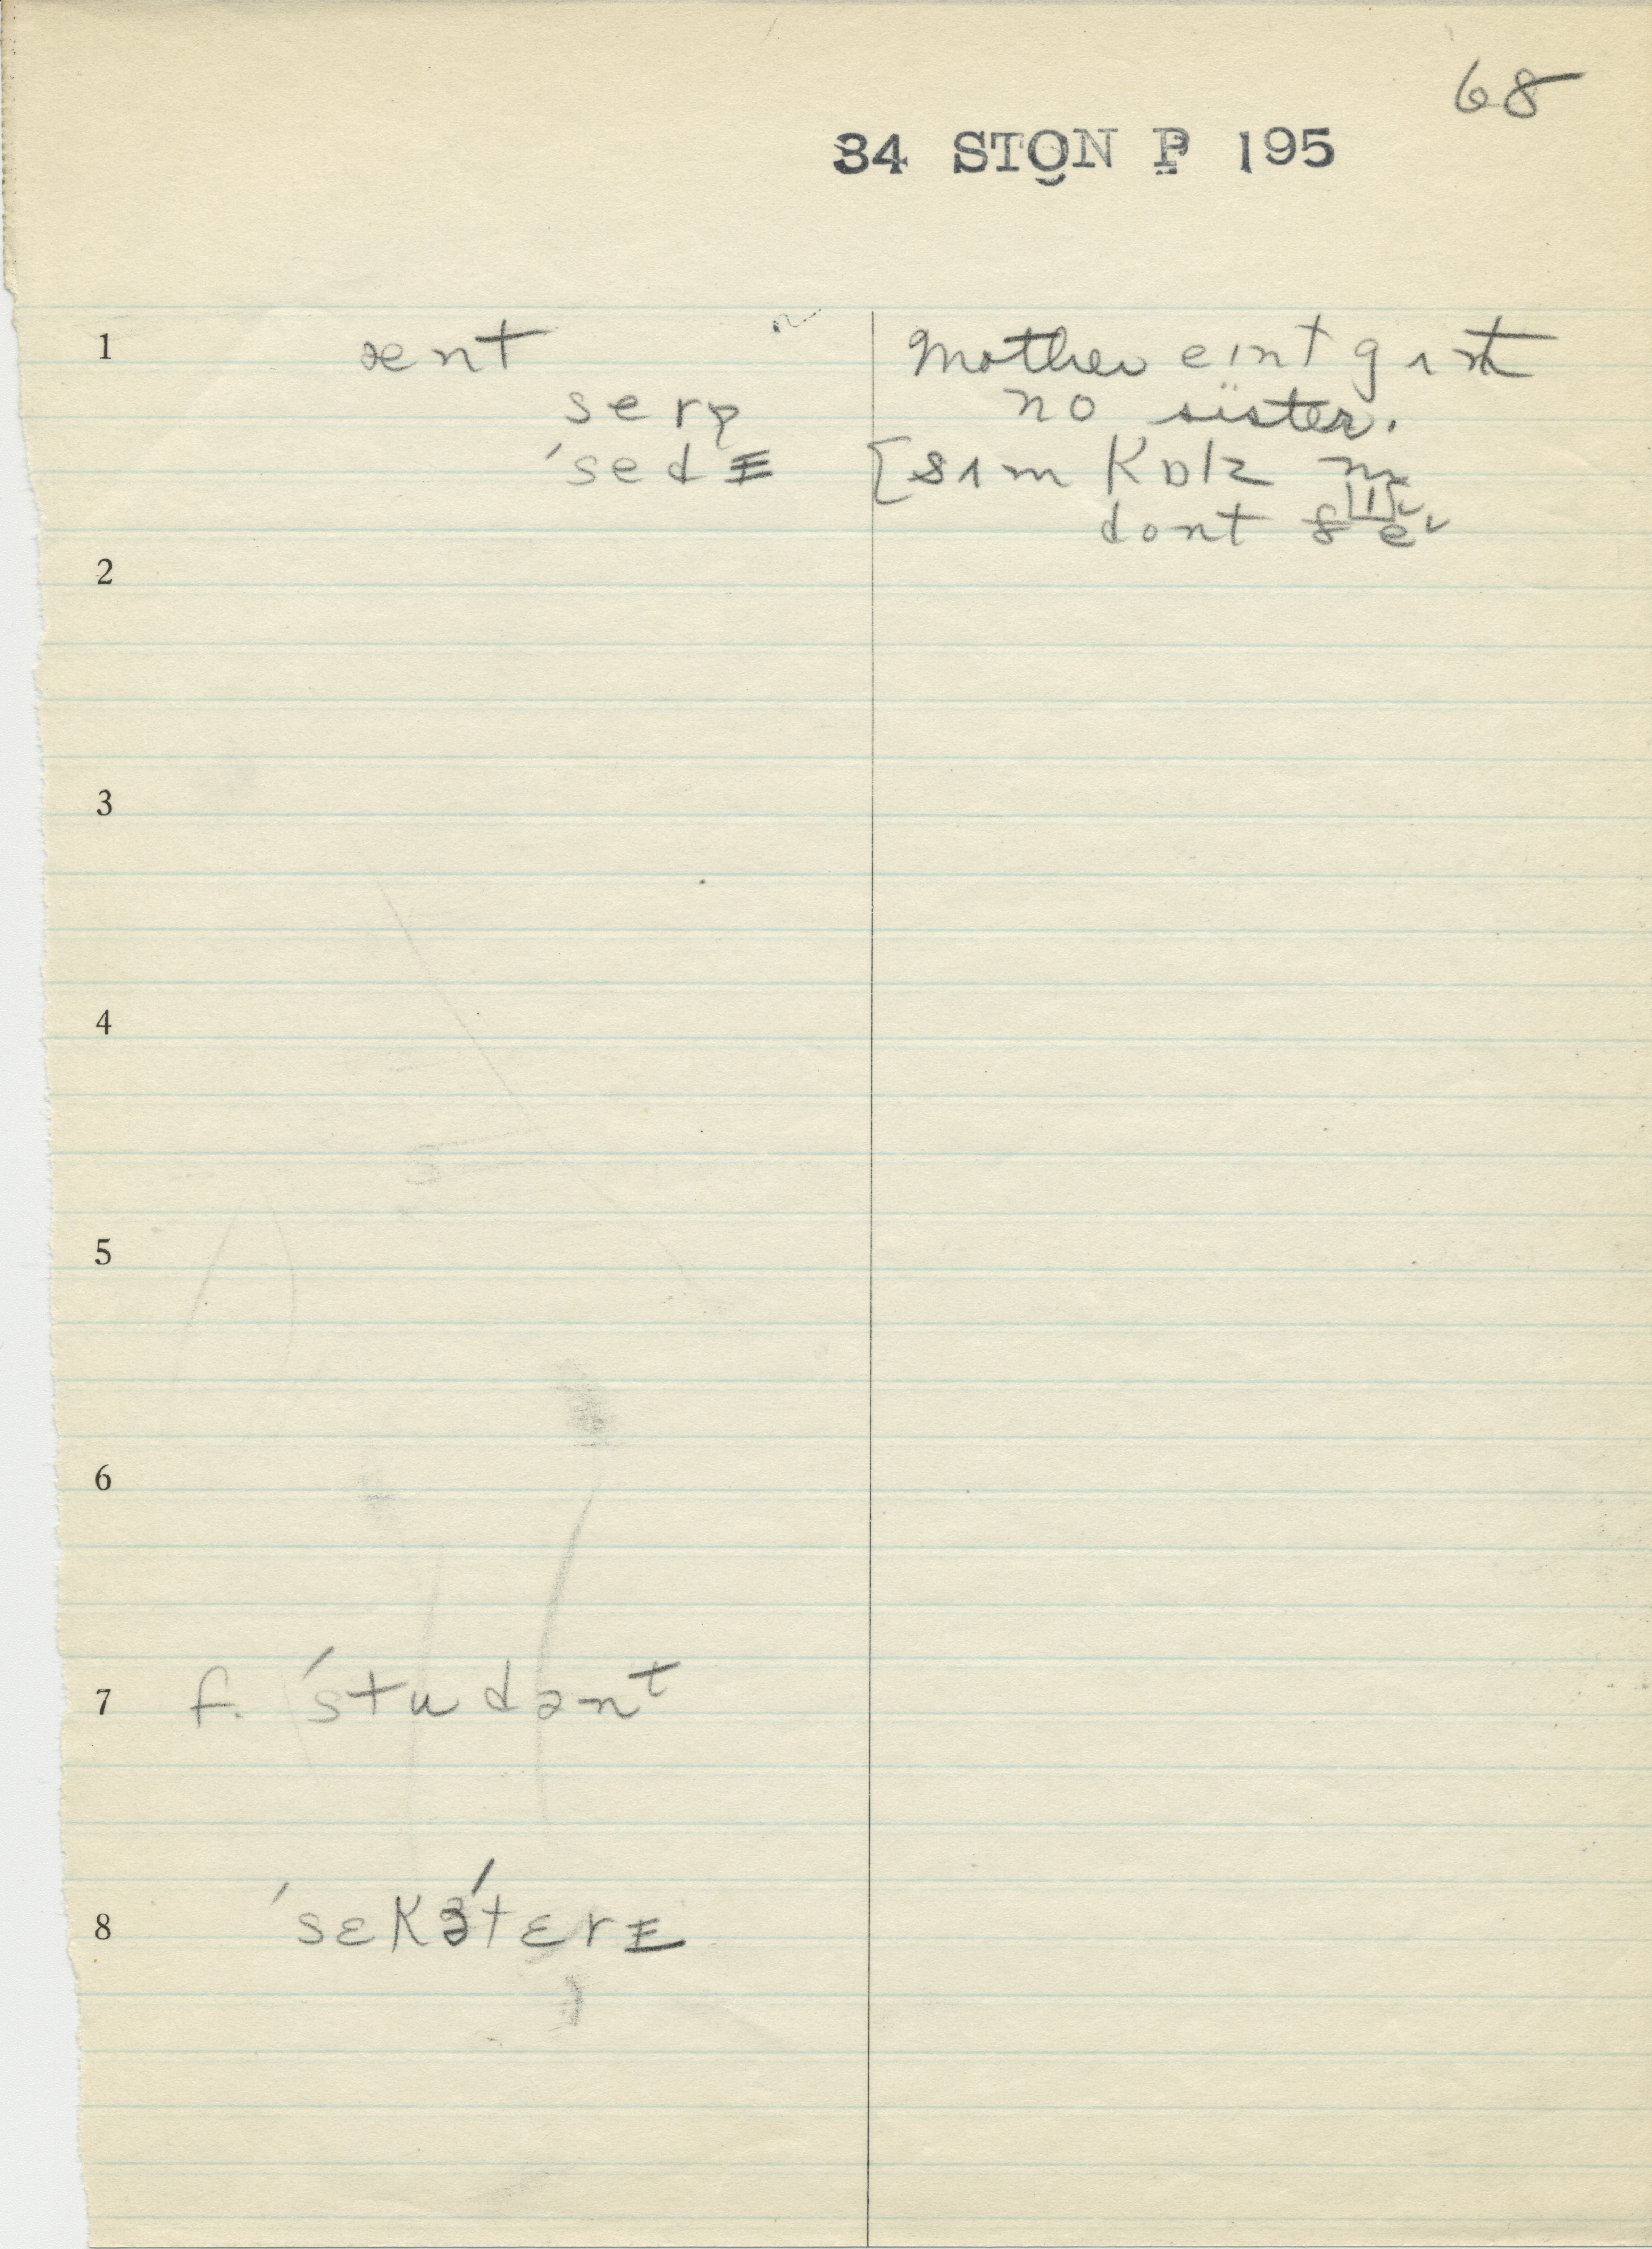 68
34 STON P 195
1 ænt
serp
'sedɪ
Mother eint gɪt
no sister.
[sɪm kɒlz m
dont
2
3
4
5
6
7 f. 'studənt
8 'sɛkə'tɛrɪ